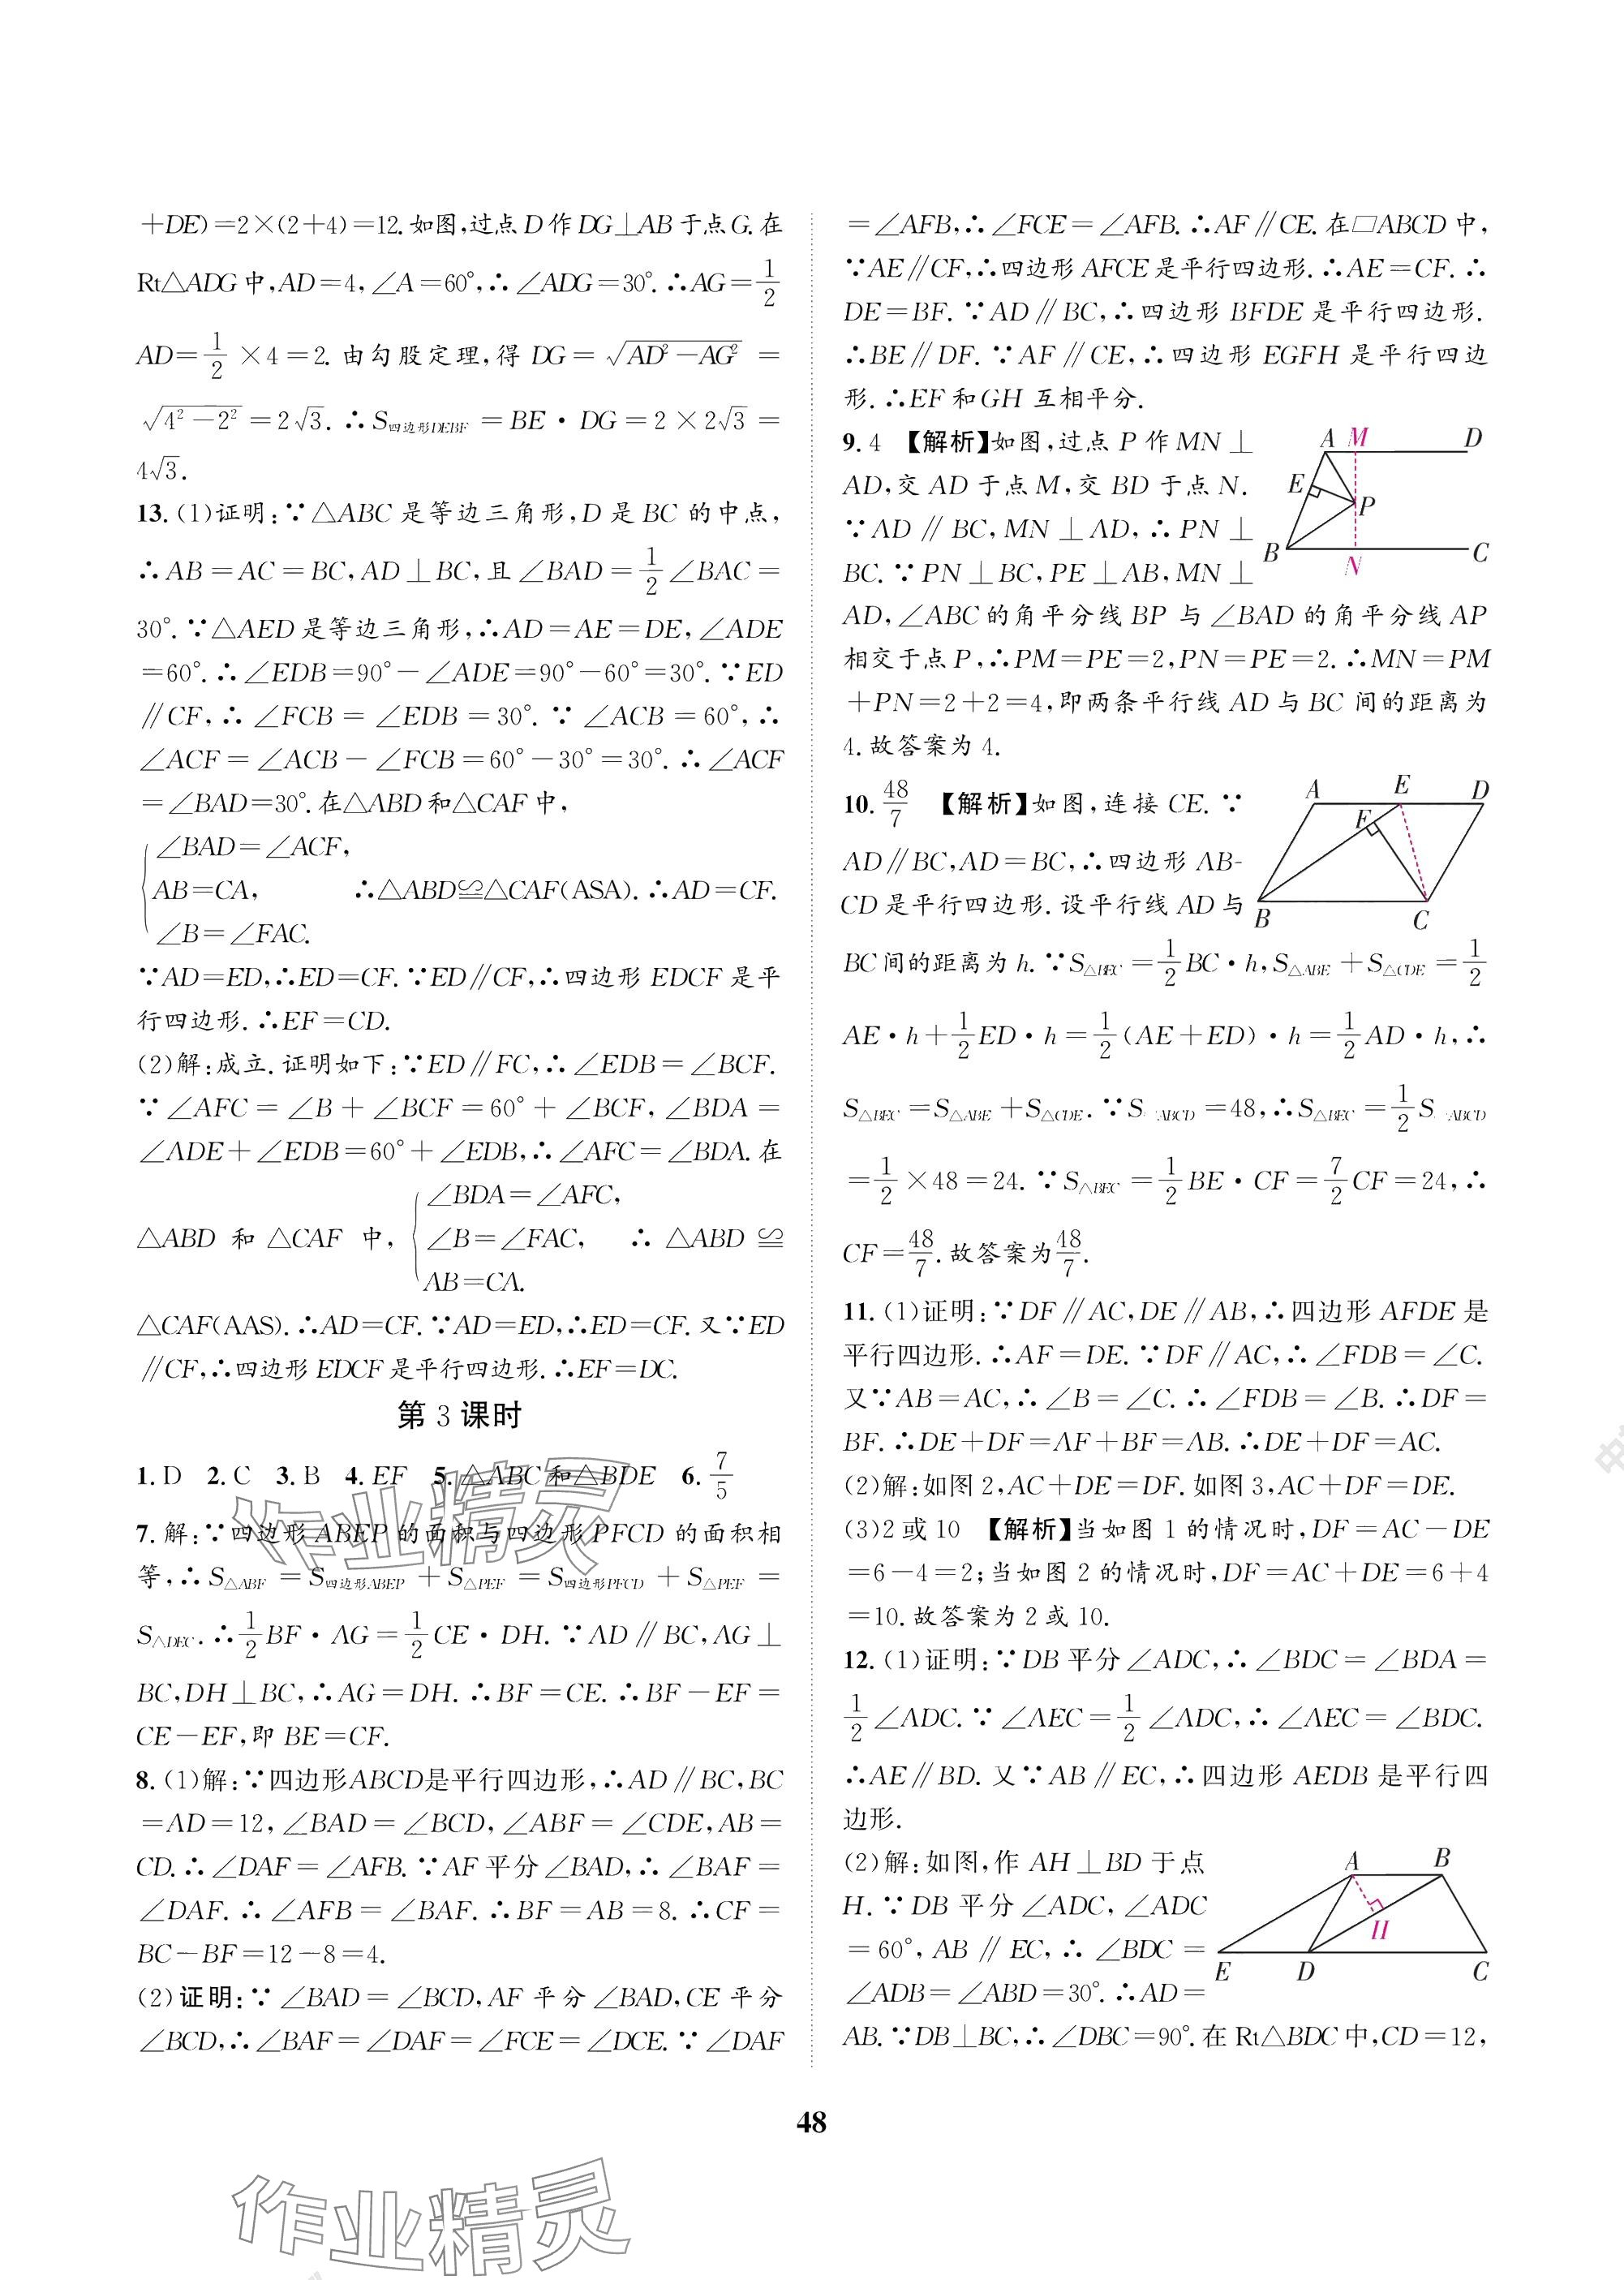 +DE)=2×(2+4)=12. 如图,过点D作DG⊥AB于点G. 在
Rt△ADG中,AD=4,∠A=60°,∴∠ADG=30°. ∴AG=1/2
AD=1/2×4=2. 由勾股定理,得DG=√(AD²-AG²)=
√(4²-2²)=2√3. ∴S四边形DEBF=BE·DG=2×2√3=
4√3.
13. (1)证明:∵△ABC是等边三角形,D是BC的中点,
∴AB=AC=BC,AD⊥BC,且∠BAD=1/2∠BAC=
30°. ∵△AED是等边三角形,∴AD=AE=DE,∠ADE
=60°. ∴∠EDB=90°-∠ADE=90°-60°=30°. ∵ED
∥CF,∴∠FCB=∠EDB=30°. ∵∠ACB=60°,∴
∠ACF=∠ACB-∠FCB=60°-30°=30°. ∴∠ACF
=∠BAD=30°. 在△ABD和△CAF中,
∠BAD=∠ACF,
AB=CA, ∴△ABD≌△CAF(ASA). ∴AD=CF.
∠B=∠FAC.
∵AD=ED,∴ED=CF. ∵ED∥CF,∴四边形EDCF是平
行四边形. ∴EF=CD.
(2)解:成立. 证明如下:∵ED∥FC,∴∠EDB=∠BCF.
∵∠AFC=∠B+∠BCF=60°+∠BCF,∠BDA=
∠ADE+∠EDB=60°+∠EDB,∴∠AFC=∠BDA. 在
∠BDA=∠AFC,
△ABD和△CAF中, ∠B=∠FAC, ∴△ABD≌
AB=CA.
△CAF(AAS). ∴AD=CF. ∵AD=ED,∴ED=CF. 又∵ED
∥CF,∴四边形EDCF是平行四边形. ∴EF=DC.
第3课时
1. D 2. C 3. B 4. EF 5. △ABC和△BDE 6. 7/5
7. 解:∵四边形ABEP的面积与四边形PFCD的面积相
等,∴S△ABF=S四边形ABEP+S△PEF=S四边形PFCD+S△PEF=
S△DEC. ∴1/2BF·AG=1/2CE·DH. ∵AD∥BC,AG⊥
BC,DH⊥BC,∴AG=DH. ∴BF=CE. ∴BF-EF=
CE-EF,即BE=CF.
8. (1)解:∵四边形ABCD是平行四边形,∴AD∥BC,BC
=AD=12,∠BAD=∠BCD,∠ABF=∠CDE,AB=
CD. ∴∠DAF=∠AFB. ∵AF平分∠BAD,∴∠BAF=
∠DAF. ∴∠AFB=∠BAF. ∴BF=AB=8. ∴CF=
BC-BF=12-8=4.
(2)证明:∵∠BAD=∠BCD,AF平分∠BAD,CE平分
∠BCD,∴∠BAF=∠DAF=∠FCE=∠DCE. ∵∠DAF
=∠AFB,∴∠FCE=∠AFB. ∴AF∥CE. 在□ABCD中,
∵AE∥CF,∴四边形AFCE是平行四边形. ∴AE=CF. ∴
DE=BF. ∵AD∥BC,∴四边形BFDE是平行四边形.
∴BE∥DF. ∵AF∥CE,∴四边形EGFH是平行四边
形. ∴EF和GH互相平分.
9. 4 【解析】如图,过点P作MN⊥
AD,交AD于点M,交BD于点N.
∵AD∥BC,MN⊥AD,∴PN⊥
BC. ∵PN⊥BC,PE⊥AB,MN⊥
AD,∠ABC的角平分线BP与∠BAD的角平分线AP
相交于点P,∴PM=PE=2,PN=PE=2. ∴MN=PM
+PN=2+2=4,即两条平行线AD与BC间的距离为
4. 故答案为4.
A M D
E
P
B N C
10. 48/7 【解析】如图,连接CE. ∵
AD∥BC,AD=BC,∴四边形AB-
CD是平行四边形. 设平行线AD与
BC间的距离为h. ∵S△BEC=1/2BC·h,S△ABE+S△CDE=1/2
AE·h+1/2ED·h=1/2(AE+ED)·h=1/2AD·h,∴
S△BEC=S△ABE+S△CDE. ∵S ABCD=48,∴S△BEC=1/2S ABCD
=1/2×48=24. ∵S△BEC=1/2BE·CF=7/2CF=24,∴
CF=48/7. 故答案为48/7.
A E D
F
B C
11. (1)证明:∵DF∥AC,DE∥AB,∴四边形AFDE是
平行四边形. ∴AF=DE. ∵DF∥AC,∴∠FDB=∠C.
又∵AB=AC,∴∠B=∠C. ∴∠FDB=∠B. ∴DF=
BF. ∴DE+DF=AF+BF=AB. ∴DE+DF=AC.
(2)解:如图2,AC+DE=DF. 如图3,AC+DF=DE.
(3)2或10 【解析】当如图1的情况时,DF=AC-DE
=6-4=2;当如图2的情况时,DF=AC+DE=6+4
=10. 故答案为2或10.
12. (1)证明:∵DB平分∠ADC,∴∠BDC=∠BDA=
1/2∠ADC. ∵∠AEC=1/2∠ADC,∴∠AEC=∠BDC.
∴AE∥BD. 又∵AB∥EC,∴四边形AEDB是平行四
边形.
(2)解:如图,作AH⊥BD于点
H. ∵DB平分∠ADC,∠ADC
=60°,AB∥EC,∴∠BDC=
∠ADB=∠ABD=30°. ∴AD=
AB. ∵DB⊥BC,∴∠DBC=90°. 在Rt△BDC中,CD=12,
A B
H
E D C
48
作业精灵
作业精灵